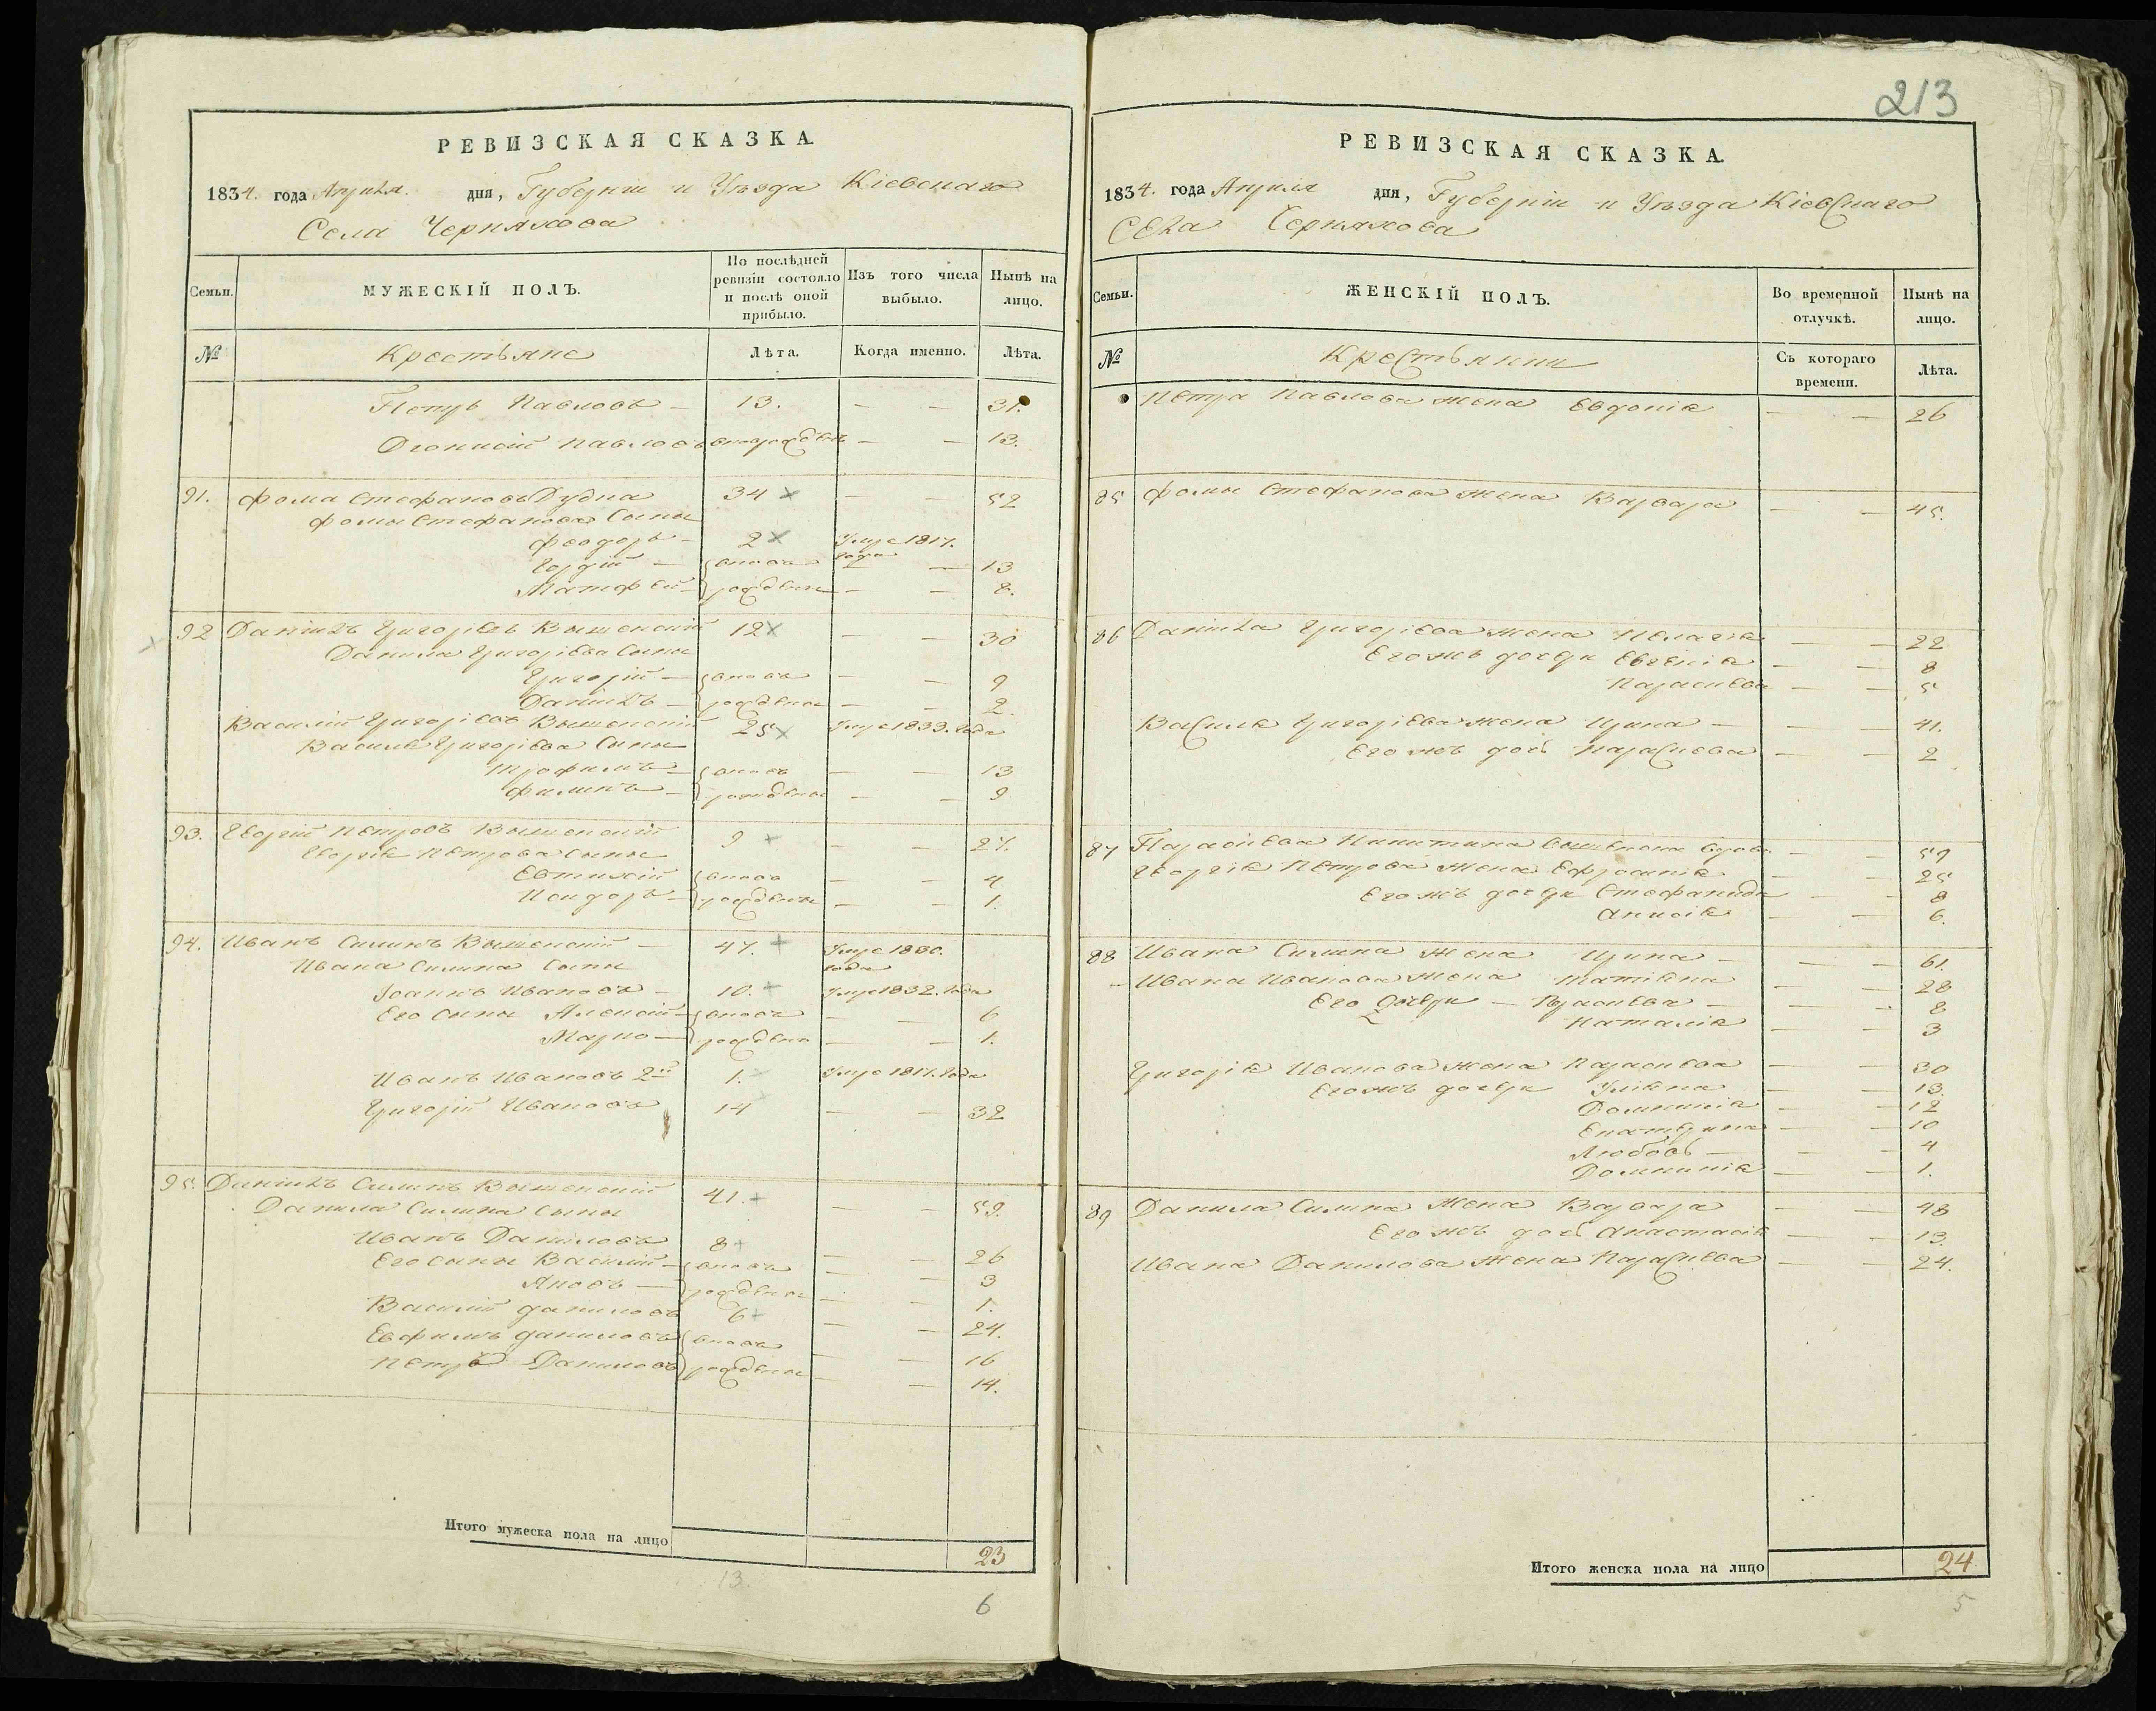 213
РЕВИЗСКАЯ СКАЗКА.
1834. года Апреля дня, Губерніи и Уѣзда Кіевскаго
Села Черняхова
Семьи. МУЖЕСКІЙ ПОЛЪ. По послѣдней ревизіи состояло и послѣ оной прибыло. Изъ того числа выбыло. Нынѣ на лицо.
№ Крестьяне Лѣта. Когда именно. Лѣта.
Петръ Павловъ — 13. — — 31.
Діонисій Павловъ — — 13.
91. Фома Стефановъ Дудка 34 × — — 52
Фомы Стефанова Сыны
Феодоръ — 2 × Умре 1817. года
Гордій — вновь — — 13
Матфей — рожденные — — 8.
92 Даніилъ Григоріевъ Вышенскій 12 × — — 30
Данила Григоріева Сыны
Григорій — вновь — — 9
Даніилъ — рожденные — — 2.
Василій Григоріевъ Вышенскій 25 × Умре 1833. года
Василія Григоріева Сыны
Трофимъ — вновь — — 13
Филипъ — рожденные — — 9
93. Георгій Петровъ Вышенскій 9 + — — 27.
Георгія Петрова Сыны
Евтихій вновь — — 4
Исидоръ — рожденные — — 1.
94. Иванъ Силинъ Вышенскій — 47. + Умре 1830. года
Ивана Силина Сыны
Іоаннъ Ивановъ — 10. + Умре 1832. года
Его сыны Алексій — вновь — — 6
Марко — рожденны — — 1.
Иванъ Ивановъ 2й 1. × Умре 1817. года
Григорій Ивановъ 14 × — — 32
95. Даніилъ Силинъ Вышенскій 41. + — — 59.
Данила Силина Сыны
Иванъ Даніловъ 8 + — — 26
Его сыны Василій — вновь — — 3
Яковъ — рожденны — — 1.
Василій Даниловъ 6 + — — 24.
Евфимъ Даниловъ вновь — — 16
Петръ Даниловъ рожденны — — 14.
Итого мужеска пола на лицо 23
13
6
РЕВИЗСКАЯ СКАЗКА.
1834. года Апреля дня, Губерніи и Уѣзда Кіевскаго
Села Черняхова
Семьи. ЖЕНСКІЙ ПОЛЪ. Во временной отлучкѣ. Нынѣ на лицо.
№ Крестьянки Съ котораго времени. Лѣта.
Петра Павлова жена Евдокія — — 26
85 Фомы Стефанова жена Варвара — — 45.
86 Даніила Григоріева жена Пелагія — — 22
Его жъ дочери Евгенія — — 8
Параскева — — 5
Василія Григоріева жена Ирина — — 41.
Его жъ дочь Параскева — — 2
87 Параскева Никитина вдова — — 59
Георгія Петрова жена Ефросинія — — 25
Его жъ дочери Стефанида — — 8
Анисія — — 6.
88 Ивана Силина жена Ирина — — — 61.
Ивана Иванова жена Татіяна — — 28
Его дочери — Параскева — — — 8
Наталія — — 3
Григорія Иванова жена Параскева — — 30
Его жъ дочери Уліяна — — 13.
Домникія — — 12
Екатерина — — 10
Любовь — — — 4
Домникія — — 1.
89 Данила Силина жена Варвара — — 48
Его жъ дочь Анастасія — — 13.
Ивана Данилова жена Параскева — — 24.
Итого женска пола на лицо 24.
5